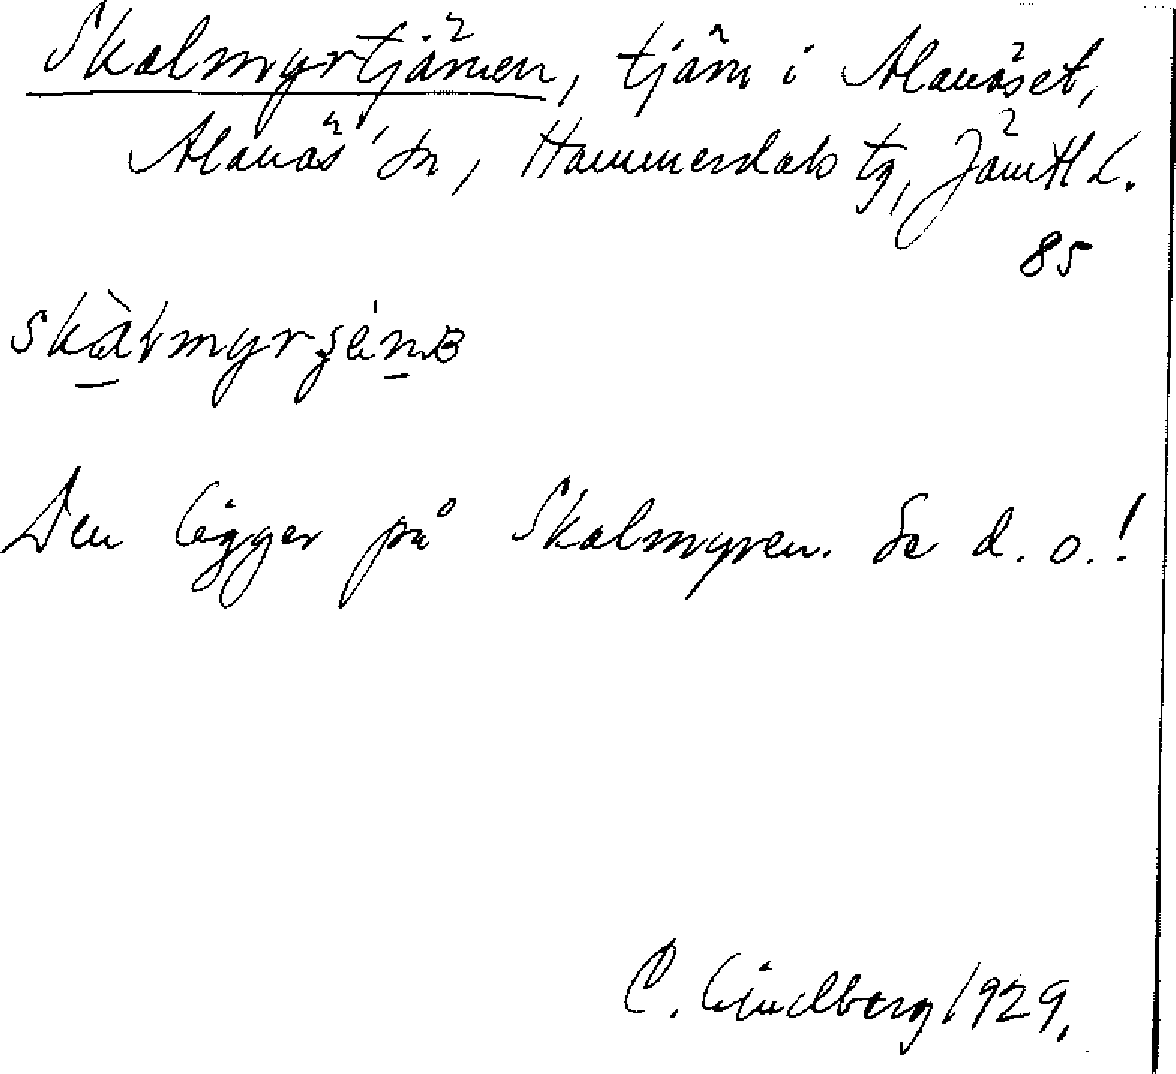 Skalmyrtjärnen, tjärn i Alanäset,
Alanäs sn, Hammerdals tg, Jämtl L.
85
Den ligger på Skalmyren. Se d. o.!
C. Lindberg 1929.